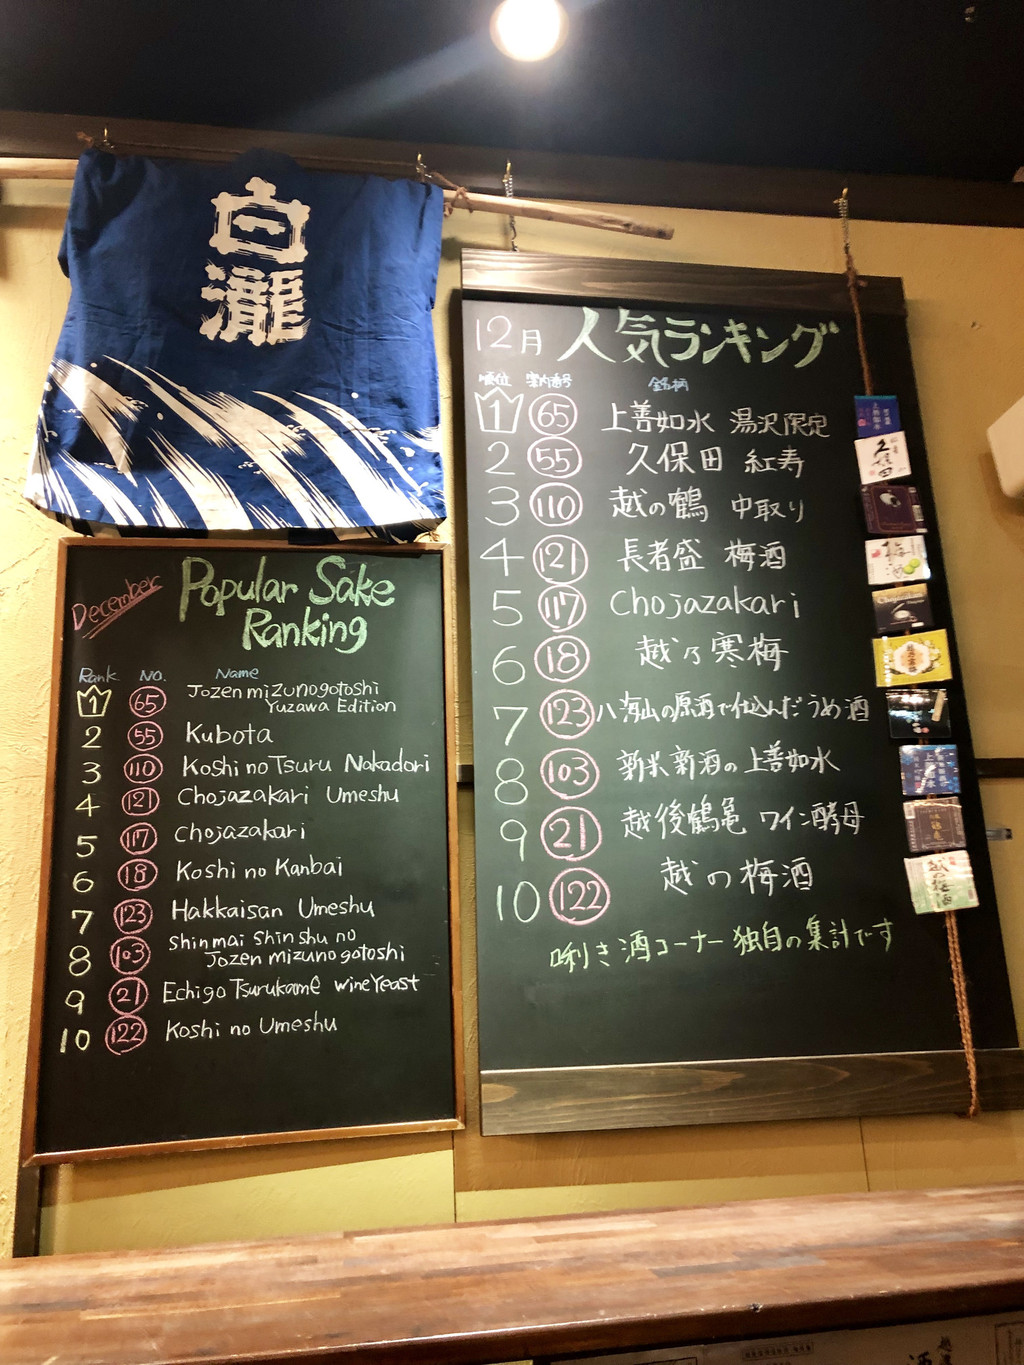 白瀧
December
Popular Sake
Ranking
Rank. No. Name
1 65 Jozen mizunogotoshi
Yuzawa Edition
2 55 Kubota
3 110 Koshi no Tsuru Nakadori
4 121 Chojazakari Umeshu
5 117 Chojazakari
6 18 Koshi no Kanbai
7 123 Hakkaisan Umeshu
8 103 shinmai shinshu no
Jozen mizunogotoshi
9 21 Echigo Tsurukame wine Yeast
10 122 Koshi no Umeshu
12月 人気ランキング
順位 案内番号 銘柄
1 65 上善如水 湯沢限定
2 55 久保田 紅寿
3 110 越の鶴 中取り
4 121 長者盛 梅酒
5 117 Chojazakari
6 18 越乃寒梅
7 123 八海山の原酒で仕込んだうめ酒
8 103 新米新酒の上善如水
9 21 越後鶴亀 ワイン酵母
10 122 越の梅酒
唎き酒コーナー独自の集計です
久保田